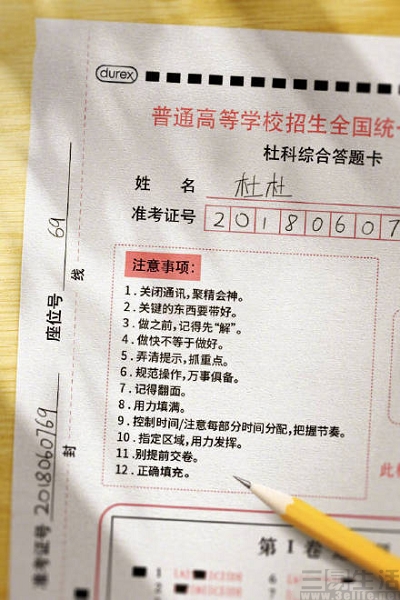 durex
普通高等学校招生全国统一
杜科综合答题卡
姓 名 杜杜
准考证号 20180607
注意事项：
1．关闭通讯，聚精会神。
2．关键的东西要带好。
3．做之前，记得先“解”。
4．做快不等于做好。
5．弄清提示，抓重点。
6．规范操作，万事俱备。
7．记得翻面。
8．用力填满。
9．控制时间/注意每部分时间分配，把握节奏。
10．指定区域，用力发挥。
11．别提前交卷。
12．正确填充。
座位号 69
准考证号 2018060769
线
封
第Ⅰ卷
三易生活
www.31elife.net